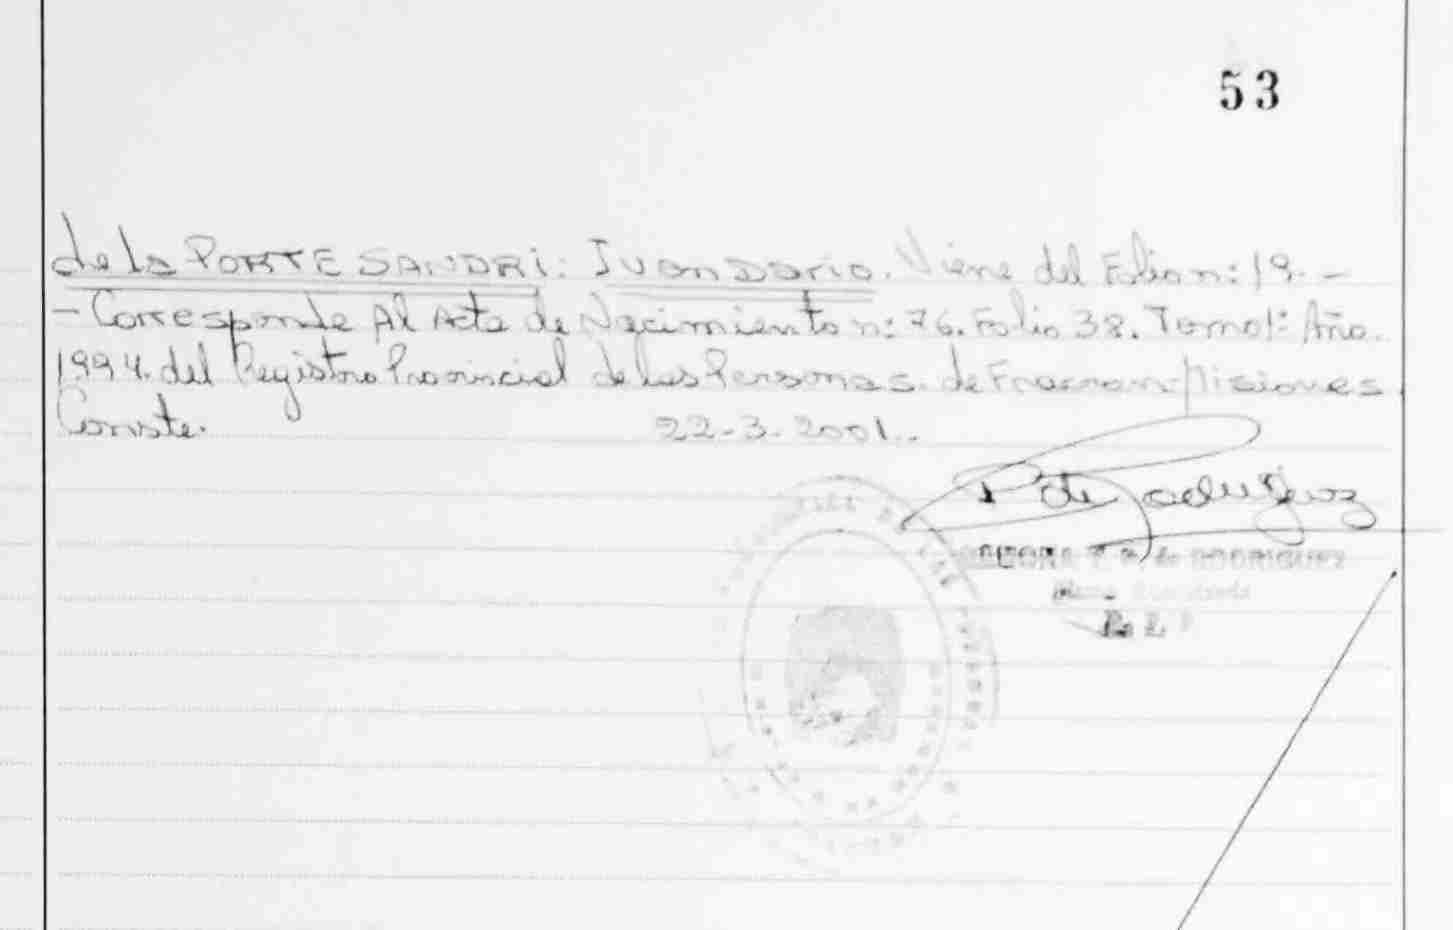 53
de la PORTE SANDRI: Juan Dario. Viene del Folio n: 19. -
- Corresponde Al Acta de Nacimiento n: 76. Folio 38. Tomo 1: Año.
1.994. del Registro Provincial de las Personas. de Fracran-Misiones.
Conste.
22-3-2001.-
de RODRIGUEZ